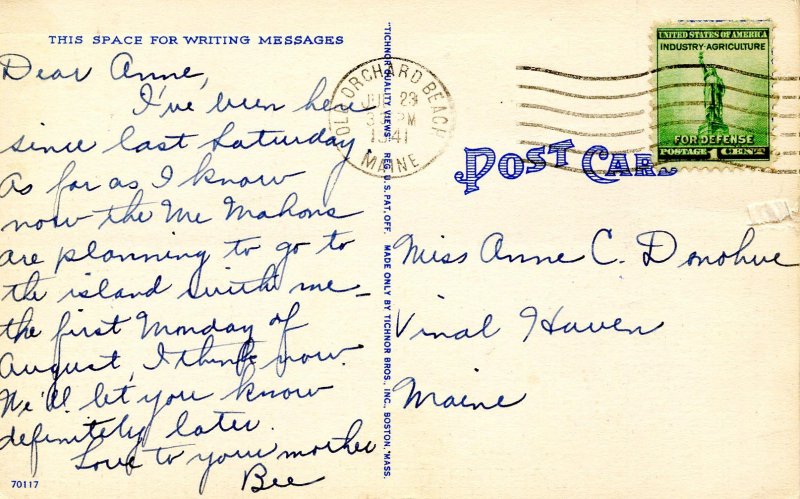 THIS SPACE FOR WRITING MESSAGES
Dear Anne,
I've been here
since last Saturday
As far as I know
now the Mc Mahons
are planning to go to
the island with me—
the first Monday of
August, I think now.
We'll let you know
definitely later.
Love to your mother
Bee
70117
"TICHNOR QUALITY VIEWS," REG. U. S. PAT. OFF. MADE ONLY BY TICHNOR BROS., INC., BOSTON, MASS.
OLD ORCHARD BEACH
29
PM
1941
MAINE
UNITED STATES OF AMERICA
INDUSTRY-AGRICULTURE
FOR DEFENSE
POSTAGE 1 CENT
POST CARD
Miss Anne C. Donohue
Vinal Haven
Maine